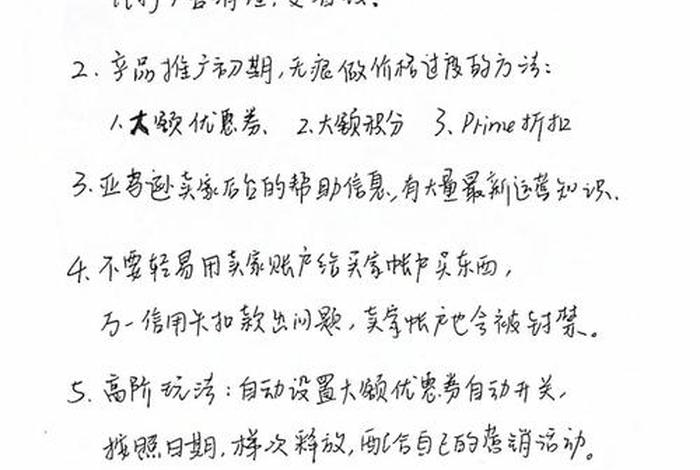 2. 产品推广初期,无痕做价格过度的方法:
1、大额优惠券、 2、大额积分 3、Prime折扣
3. 亚马逊卖家后台的帮助信息、有大量最新运营知识.
4. 不要轻易用卖家账户给买家帐户买东西,
万一信用卡扣款出问题,卖家帐户也会被封禁。
5. 高阶玩法:自动设置大额优惠券自动开关,
按照日期,梯次释放,配合自己的营销活动。